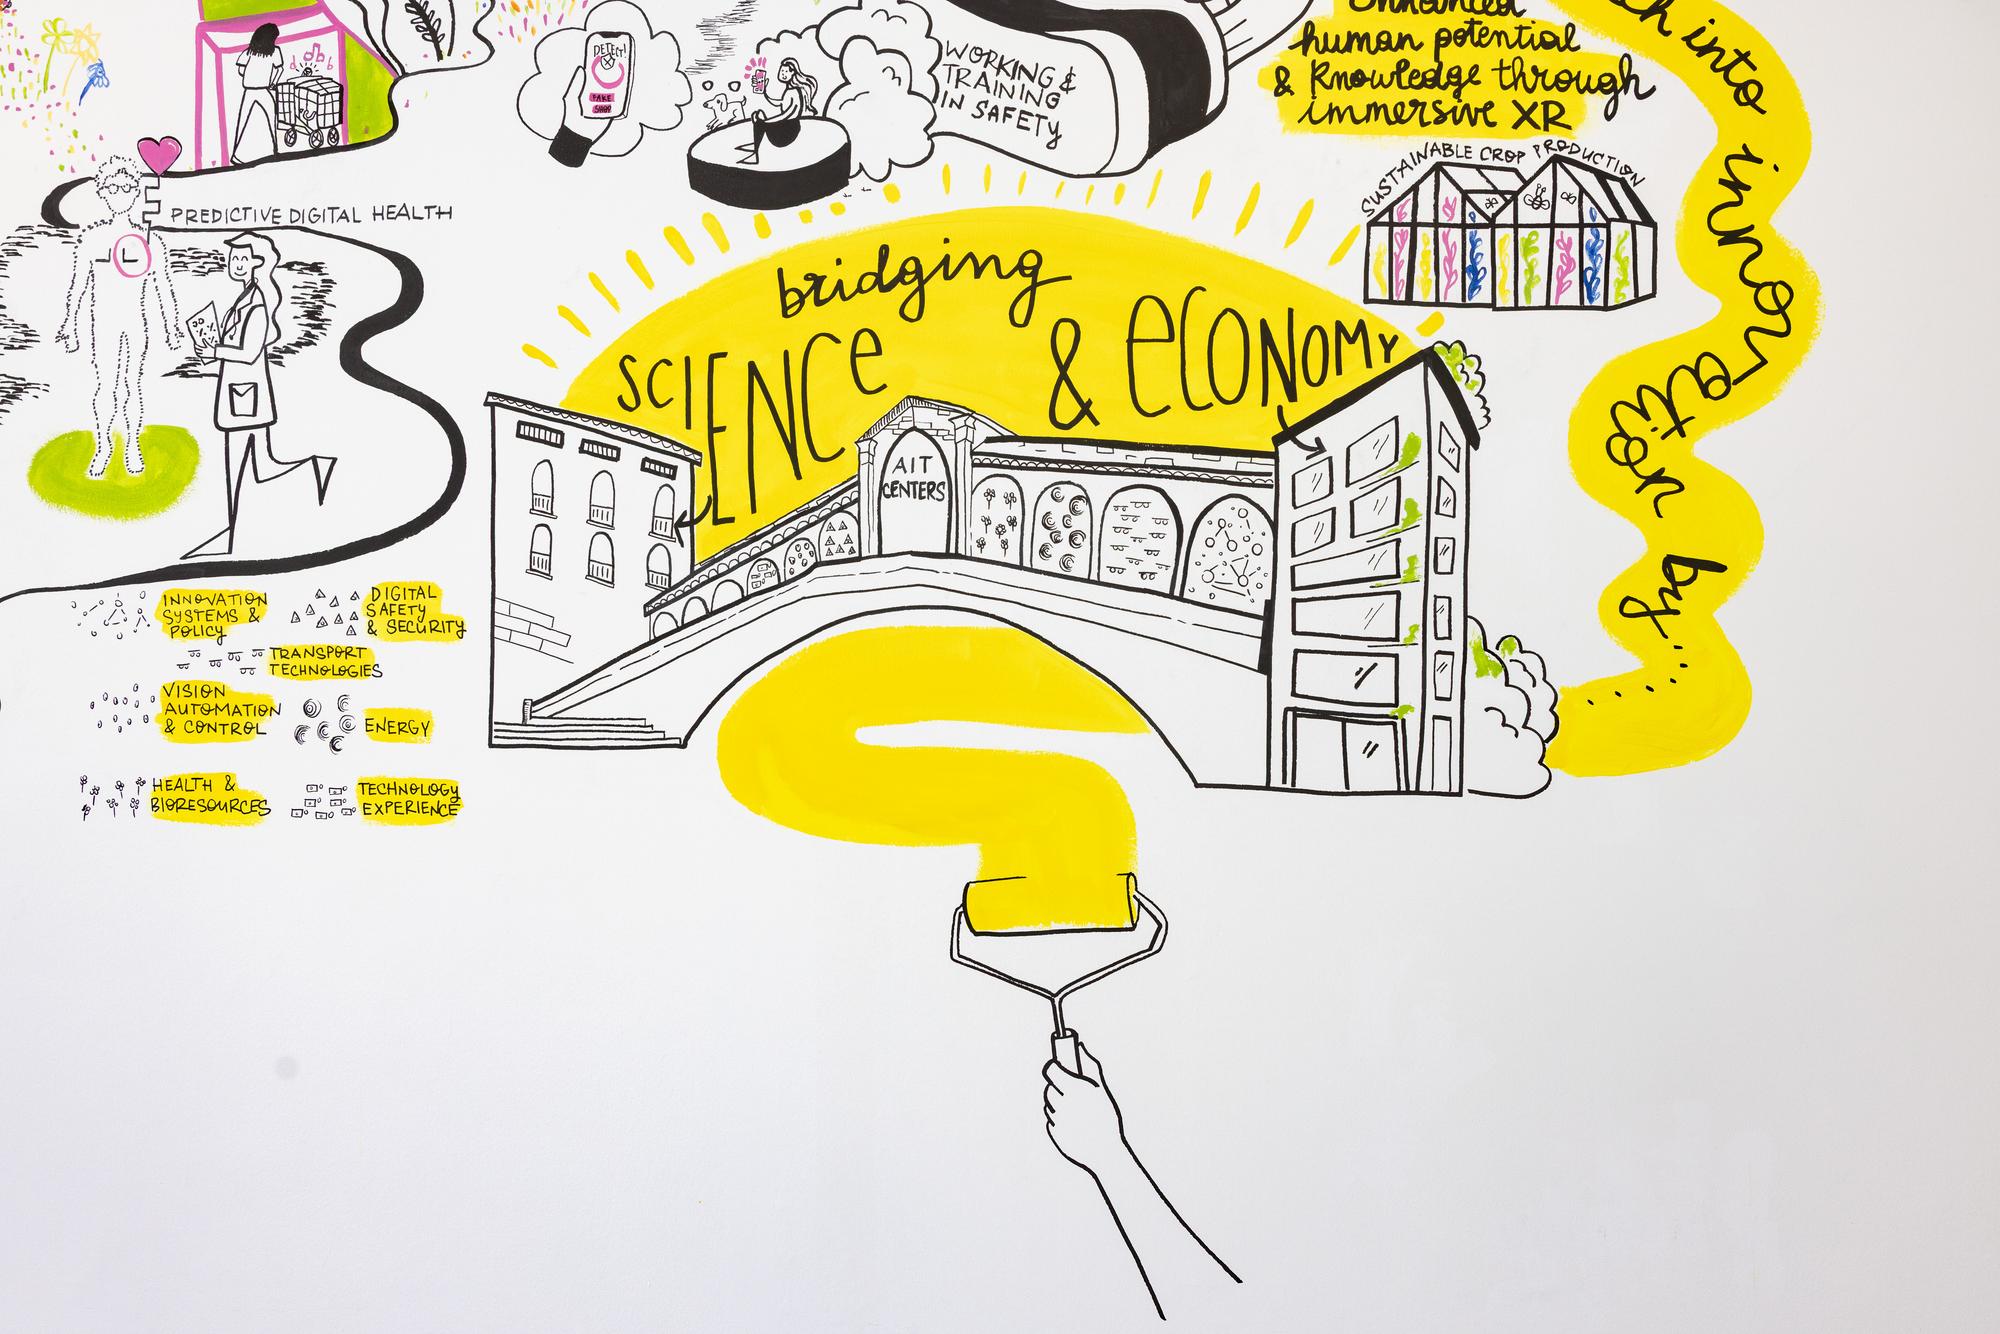 DETECT!
FAKE
SHOP
WORKING &
TRAINING
IN SAFETY
Enhanced
human potential
& Knowledge through
immersive XR
into innovation by...
SUSTAINABLE CROP PRODUCTION
PREDICTIVE DIGITAL HEALTH
bridging
SCIENCE & ECONOMY
AIT
CENTERS
INNOVATION
SYSTEMS &
POLICY
DIGITAL
SAFETY
& SECURITY
TRANSPORT
TECHNOLOGIES
VISION
AUTOMATION
& CONTROL
ENERGY
HEALTH &
BIORESOURCES
TECHNOLOGY
EXPERIENCE